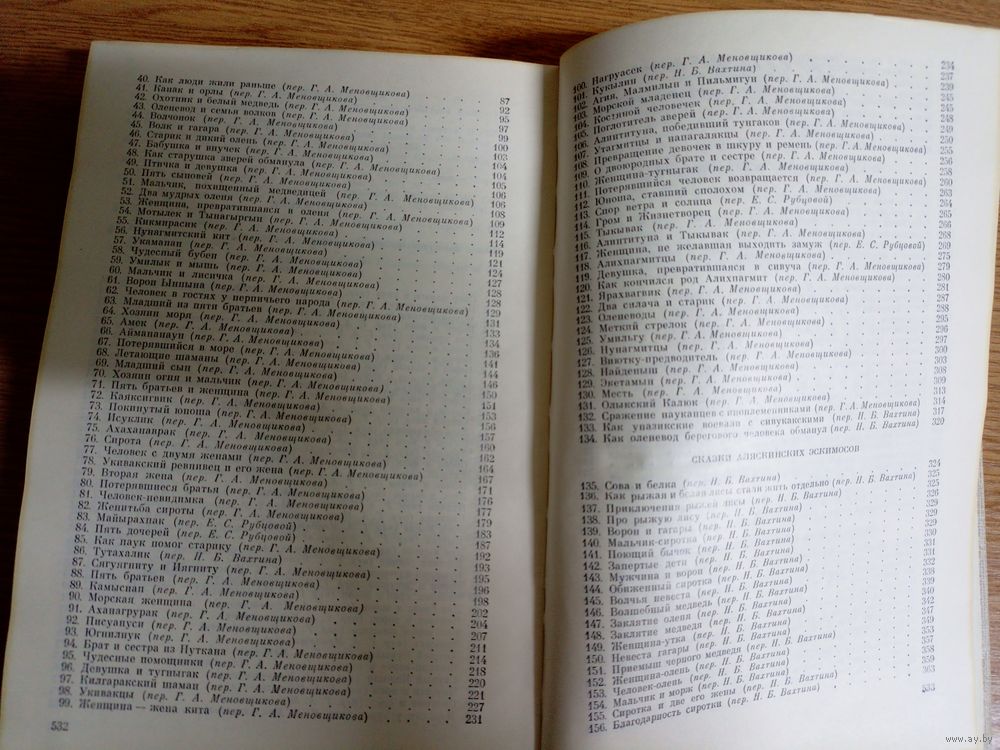 40. Как люди жили раньше (пер. Г. А. Меновщикова) 87
41. Канак и орлы (пер. Г. А. Меновщикова) 92
42. Охотник и белый медведь (пер. Г. А. Меновщикова) 95
43. Оленевод и семья волков (пер. Г. А. Меновщикова) 97
44. Волчонок (пер. Г. А. Меновщикова) 99
45. Волк и гагара (пер. Г. А. Меновщикова) 100
46. Старик и дикий олень (пер. Г. А. Меновщикова) 103
47. Бабушка и внучек (пер. Г. А. Меновщикова) 104
48. Как старушка зверей обманула (пер. Г. А. Меновщикова) 104
49. Птичка и девушка (пер. Г. А. Меновщикова) 105
50. Пять сыновей (пер. Г. А. Меновщикова) 106
51. Мальчик, похищенный медведицей (пер. Г. А. Меновщикова) 108
52. Два мудрых оленя (пер. Г. А. Меновщикова) 109
53. Женщина, превратившаяся в оленя (пер. Г. А. Меновщикова) 112
54. Мотылек и Тынагыргын (пер. Г. А. Меновщикова) 114
55. Кикмирасик (пер. Г. А. Меновщикова) 119
56. Нунагмитский кит (пер. Г. А. Меновщикова) 121
57. Укаманап (пер. Г. А. Меновщикова) 124
58. Чудесный бубен (пер. Г. А. Меновщикова) 127
59. Умилык и мышь (пер. Г. А. Меновщикова) 128
60. Мальчик и лисичка (пер. Г. А. Меновщикова) 128
61. Ворон Ыныпа (пер. Г. А. Меновщикова) 129
62. Человек в гостях у нерпичьего народа (пер. Г. А. Меновщикова) 131
63. Младший из пяти братьев (пер. Г. А. Меновщикова) 133
64. Хозяин моря (пер. Г. А. Меновщикова) 134
65. Амек (пер. Г. А. Меновщикова) 136
66. Айманапаун (пер. Г. А. Меновщикова) 141
67. Потерявшийся в море (пер. Г. А. Меновщикова) 144
68. Летающие шаманы (пер. Г. А. Меновщикова) 144
69. Младший сын (пер. Г. А. Меновщикова) 146
70. Хозяин огня и мальчик (пер. Г. А. Меновщикова) 150
71. Пять братьев и женщина (пер. Г. А. Меновщикова) 151
72. Каяксигвик (пер. Г. А. Меновщикова) 153
73. Покинутый юноша (пер. Г. А. Меновщикова) 156
74. Исуклик (пер. Г. А. Меновщикова) 157
75. Ахаханаврак (пер. Г. А. Меновщикова) 160
76. Сирота (пер. Г. А. Меновщикова) 162
77. Человек с двумя женами (пер. Г. А. Меновщикова) 164
78. Укивакский ревнивец и его жена (пер. Г. А. Меновщикова) 167
79. Вторая жена (пер. Г. А. Меновщикова) 171
80. Потерявшиеся братья (пер. Г. А. Меновщикова) 176
81. Человек-невидимка (пер. Г. А. Меновщикова) 177
82. Женитьба сироты (пер. Г. А. Меновщикова) 179
83. Майырахпак (пер. Е. С. Рубцовой) 183
84. Пять дочерей (пер. Е. С. Рубцовой) 187
85. Как паук помог старику (пер. Г. А. Меновщикова) 192
86. Тутахалик (пер. Н. Б. Вахтина) 193
87. Сягунгниту и Иягниту (пер. Г. А. Меновщикова) 195
88. Пять братьев (пер. Г. А. Меновщикова) 196
89. Камыснап (пер. Г. А. Меновщикова) 198
90. Морская женщина (пер. Г. А. Меновщикова) 202
91. Аханагрурак (пер. Г. А. Меновщикова) 204
92. Писуануси (пер. Г. А. Меновщикова) 207
93. Югнилнук (пер. Г. А. Меновщикова) 211
94. Брат и сестра из Нуткана (пер. Г. А. Меновщикова) 214
95. Чудесные помощники (пер. Г. А. Меновщикова) 218
96. Девушка и тугныгак (пер. Г. А. Меновщикова) 220
97. Килгаракский шаман (пер. Г. А. Меновщикова) 221
98. Укивакцы (пер. Г. А. Меновщикова) 227
99. Женщина — жена кита (пер. Г. А. Меновщикова) 231
532
100. Нагруасек (пер. Г. А. Меновщикова) 234
101. Кукылин (пер. Н. Б. Вахтина) 237
102. Агия, Малмилын и Пильмигун (пер. Г. А. Меновщикова) 239
103. Морской младенец (пер. Г. А. Меновщикова) 245
104. Костяной человечек (пер. Г. А. Меновщикова) 245
105. Поглотитель зверей (пер. Г. А. Меновщикова) 248
106. Алингитуна, победивший тунгаков (пер. Г. А. Меновщикова) 249
107. Утагмитцы и напагаляцкцы (пер. Г. А. Меновщикова) 250
108. Превращение девочек в шкуру и ремень (пер. Г. А. Меновщикова) 255
109. О двоюродных брате и сестре (пер. Г. А. Меновщикова) 258
110. Женщина-тугныгак (пер. Г. А. Меновщикова) 260
110. Потерявшийся человек возвращается (пер. Г. А. Меновщикова) 260
111. Юноша, ставший сполохом (пер. Г. А. Меновщикова) 263
112. Спор ветра и солнца (пер. Е. С. Рубцовой) 265
113. Гром и Жизнетворец (пер. Г. А. Меновщикова) 265
115. Тыкывак (пер. Г. А. Меновщикова) 266
116. Алингитупа и Тыкывак (пер. Г. А. Меновщикова) 268
117. Женщина, не желавшая выходить замуж (пер. Е. С. Рубцовой) 269
118. Алихпагмитцы (пер. Г. А. Меновщикова) 275
119. Девушка, превратившаяся в сивуча (пер. Г. А. Меновщикова) 279
120. Как кончился род Алихпагмит (пер. Г. А. Меновщикова) 279
121. Ярахвагвик (пер. Г. А. Меновщикова) 280
122. Два силача и старик (пер. Г. А. Меновщикова) 285
123. Оленеводы (пер. Г. А. Меновщикова) 288
124. Меткий стрелок (пер. Г. А. Меновщикова) 295
125. Умильгу (пер. Г. А. Меновщикова) 296
126. Нунагмитцы (пер. Г. А. Меновщикова)
127. Виютку-предводитель (пер. Г. А. Меновщикова) 300
128. Найденыш (пер. Г. А. Меновщикова) 303
129. Экетамын (пер. Г. А. Меновщикова) 308
130. Месть (пер. Г. А. Меновщикова) 309
131. Олыский Калюк (пер. Г. А. Меновщикова) 313
132. Сражение науканцев с иноплеменниками (пер. Г. А. Меновщикова) 314
133. Как уназикские воевали с сивукакскими (пер. Н. Б. Вахтина) 317
134. Как оленевод берегового человека обманул (пер. Н. Б. Вахтина) 320
СКАЗКИ АЛЯСКИНСКИХ ЭСКИМОСОВ
135. Сова и белка (пер. Н. Б. Вахтина) 324
136. Как рыжая и белая лисы стали жить отдельно (пер. Н. Б. Вахтина) 325
137. Приключения рыжей лисы (пер. Н. Б. Вахтина) 325
138. Про рыжую лису (пер. Н. Б. Вахтина) 326
139. Ворон и гагары (пер. Н. Б. Вахтина) 329
140. Мальчик-сиротка (пер. Н. Б. Вахтина) 329
141. Поющий бычок (пер. Н. Б. Вахтина)
142. Запертые дети (пер. Н. Б. Вахтина)
143. Мужчина и ворон (пер. Н. Б. Вахтина)
144. Обиженный сиротка (пер. Н. Б. Вахтина)
145. Волчья невеста (пер. Н. Б. Вахтина)
146. Волшебный медведь (пер. Н. Б. Вахтина)
147. Заклятие оленя (пер. Н. Б. Вахтина)
148. Заклятие медведя (пер. Н. Б. Вахтина)
149. Женщина-утка (пер. Н. Б. Вахтина)
150. Невеста гагары (пер. Н. Б. Вахтина)
151. Приемыш черного медведя (пер. Н. Б. Вахтина)
152. Женщина-олень (пер. Н. Б. Вахтина)
153. Человек-олень (пер. Н. Б. Вахтина)
154. Мальчик и морж (пер. Н. Б. Вахтина)
155. Сиротка и две его жены (пер. Н. Б. Вахтина)
156. Благодарность сиротки (пер. Н. Б. Вахтина)
533
www.ay.by